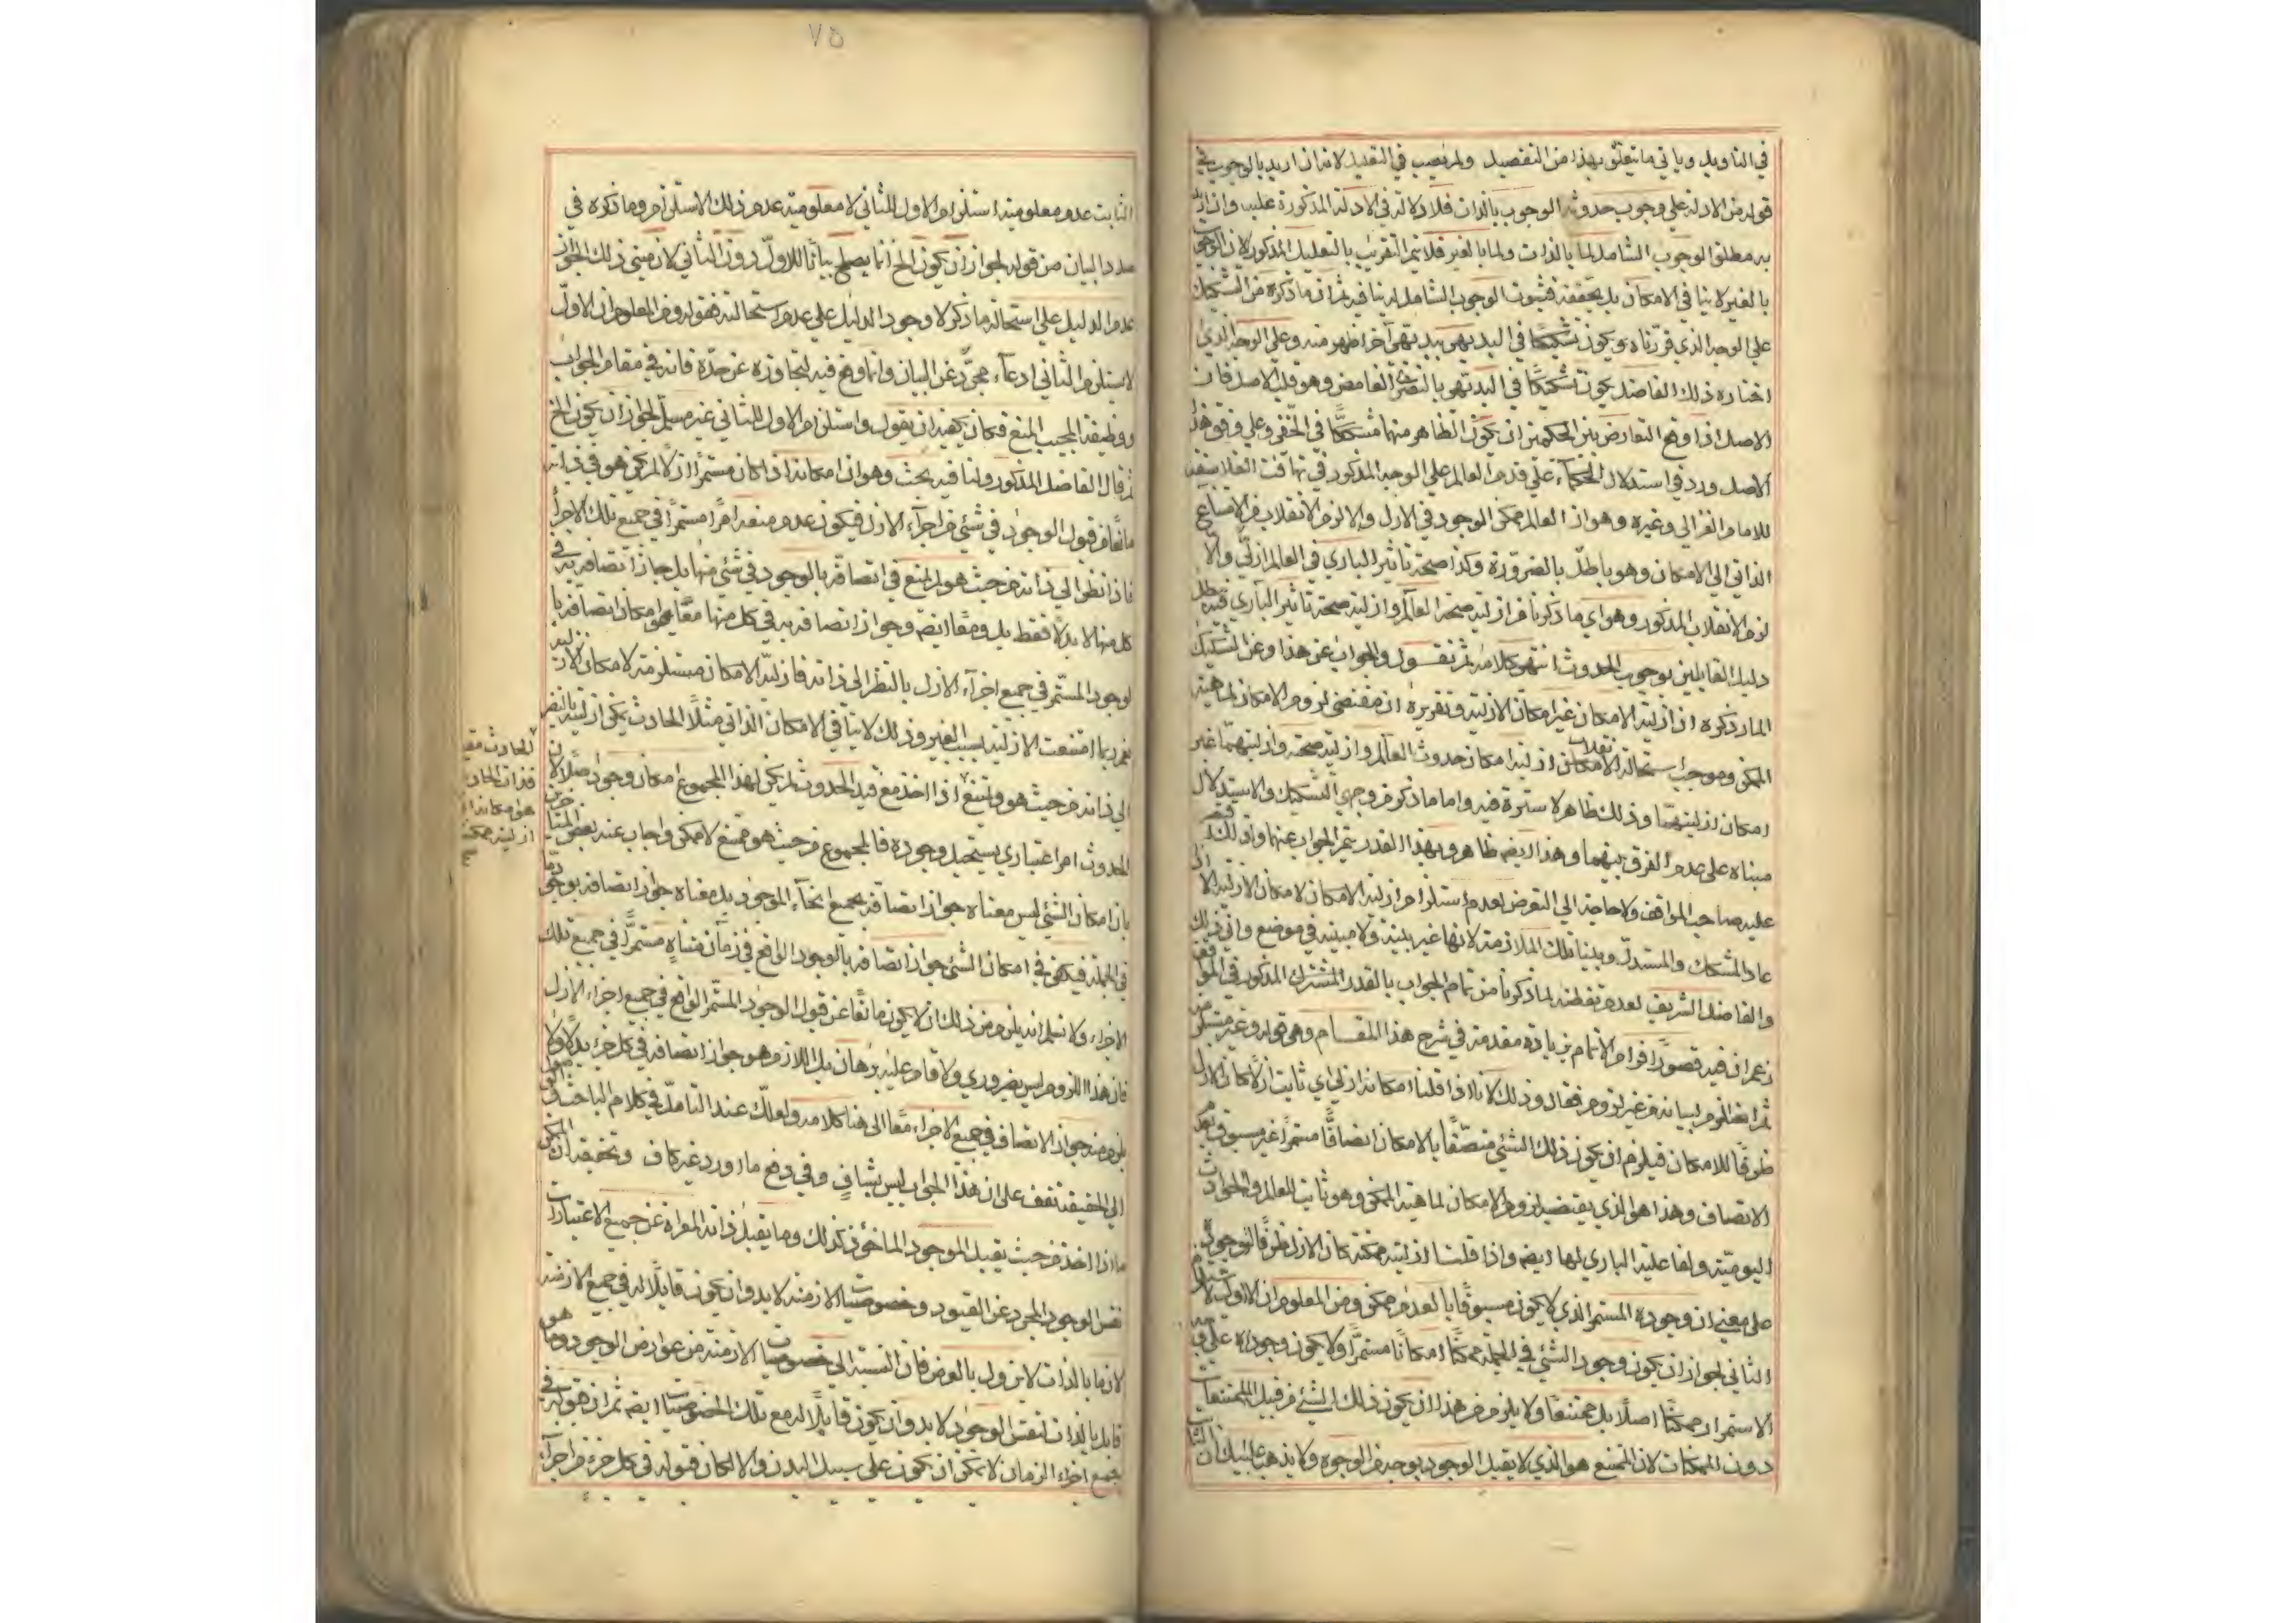 في التأويل ويأتي ما يتعلق بهذا من التفصيل ولم يصب في التعليل لانه ان اريد بالوجوب في
قوله من الادلة علي وجوب حدوثه الوجوب بالذات فلا دلالة في الادلة المذكورة عليه وان اريد
به مطلق الوجوب الشامل لما بالذات ولما بالغير فلا يتم التقريب بالتعليل المذكور لان الوجوب
بالغير لا ينافي الامكان بل يحققه فثبوت الوجوب الشامل له لا ينافيه ثم ان ما ذكره من التشكيك
علي الوجه الذي قررناه ويكون تشكيكا في البديهي ببديهي آخر اظهر منه وعلي الوجه الذي
اختاره ذلك الفاضل يكون تشكيكا في البديهي بالنظري الغامض وهو قلب الاصل فان
الاصل اذا وقع التعارض بين الحكمين ان يكون الظاهر منهما مشككا في الخفي وعلي وفق هذا
الاصل ورد في استدلال الحكماء علي قدم العالم علي الوجه المذكور في تهافت الفلاسفة
للامام الغزالي وغيره وهو ان العالم ممكن الوجود في الازل والا لزم الانقلاب من الامتناع
الذاتي الي الامكان وهو باطل بالضرورة وكذا صحة تاثير الباري في العالم ازلي والا
لزم الانقلاب المذكور وهو اي ما ذكرنا من ازلية صحة العالم وازلية صحة تاثير الباري فيه يبطل
دليل القايلين بوجوب الحدوث انتهي كلامه ثم نقول والجواب عن هذا وعن التشكيك
المار ذكره ان ازلية الامكان غير امكان الازلية وتقريره ان مقتضي لزوم الامكان لماهية
الممكن وموجب استحالة الانقلاب ازلية امكان حدوث العالم وازلية صحته وازليتهما غير
امكان ازليتهما وذلك ظاهر لا سترة فيه واما ما ذكر من وجهي التشكيك والاستدلال
مبناه علي عدم الفرق بينهما وهذا ايضا ظاهر وبهذا القدر يتم الجواب عنهما ولذلك اقتصر
عليه صاحب المواقف ولا حاجة الي التعرض لعدم استلزام ازلية الامكان لامكان الازلية الا اذا
عاد المشكك والمستدل وبينا تلك الملازمة لانها غير بينة ولا مبينة في موضع واني ذلك
والفاضل الشريف لعدم تفطنه لما ذكرنا من تمام الجواب بالقدر المشترك المذكور في المواقف
زعم ان فيه قصورا فرام الاتمام بزيادة مقدمة في شرح هذا المقام وهي قوله وغير مستلزم له
ثم انه التزم لبيانه من غير لزوم فقال وذلك لانا اذا قلنا امكانه ازلي اي ثابت ازلا كان الازل
ظرفا للامكان فيلزم ان يكون ذلك الشئ متصفا بالامكان اتصافا مستمرا غير مسبوق بعدم
الاتصاف وهذا هو الذي يقتضيه لزوم الامكان لماهية الممكن وهو ثابت للعالم والحوادث
اليومية ولفاعلية الباري لها ايضا واذا قلنا ازليته ممكنة كان الازل ظرفا لوجوده
علي معني ان وجوده المستمر الذي لا يكون مسبوقا بالعدم ممكن ومن المعلوم ان الاول لا يستلزم
الثاني لجواز ان يكون وجود الشئ في الجملة ممكنا امكانا مستمرا ولا يكون وجوده علي وجه
الاستمرار ممكنا اصلا بل ممتنعا ولا يلزم من هذا ان يكون ذلك الشئ من قبيل الممتنعات
دون الممكنات لان الممتنع هو الذي لا يقبل الوجود بوجه من الوجوه ولا يذهب عليك ان الثابت
٧٥
الثابت عدم معلومية استلزام الاول للثاني لا معلومية عدم ذلك الاستلزام وما ذكره في
صدد البيان من قوله لجواز ان يكون الخ انما يصلح بيانا للاول دون الثاني لان مبني ذلك الجواز
عدم الدليل علي استحالة ما ذكر لا وجود الدليل علي عدم استحالته فقوله ومن المعلوم ان الاول
لا يستلزم الثاني ادعاء مجرد عن البيان وانما وقع فيه لتجاوزه عن حده فانه في مقام الجواب
ووظيفة المجيب المنع فكان يكفيه ان يقول واستلزام الاول للثاني غير مسلم لجواز ان يكون الخ
ثم قال الفاضل المذكور ولنا فيه بحث وهو ان امكانه اذا كان مستمرا ازلا لم يكن هو في ذاته
مانعا من قبول الوجود في شئ من اجزاء الازل فيكون عدم منعه امرا مستمرا في جميع تلك الاجزاء
فاذا نظر الي ذاته من حيث هو لم يمنع في اتصافه بالوجود في شئ منها بل جاز اتصافه به في
كل منها لا بدلا فقط بل ومعا ايضا وجواز اتصافه به في كل منها معا هو امكان اتصافه با
لوجود المستمر في جميع اجزاء الازل بالنظر الي ذاته فازلية الامكان مستلزمة لامكان الازلية
نعم ربما امتنعت الازلية بسبب الغير وذلك لا ينافي الامكان الذاتي مثلا الحادث يمكن ازليته بالنظر
الي ذاته من حيث هو ويمتنع اذا اخذ مع قيد الحدوث لم يكن لهذا المجموع امكان وجود اصلا لان
الحدوث امر اعتباري يستحيل وجوده فالمجموع من حيث هو ممتنع لا ممكن واجاب عنه بعض المتاخرين
بان امكان الشئ ليس معناه جواز اتصافه بجميع انحاء الوجود بل معناه جواز اتصافه بوجود ما
في الجملة فيكفي في امكان الشئ جواز اتصافه بالوجود الواقع في زمان متناه مستمرا في جميع تلك
الاجزاء ولا نسلم انه يلزم من ذلك ان لا يكون مانعا عن قبول الوجود المستمر الواقع في جميع اجزاء الازل
فان هذا اللزوم ليس بضروري ولا قام عليه برهان بل اللازم هو جواز اتصافه في كل جزء بدلا ولا
يلزم منه جواز الاتصاف في جميع الاجزاء معا الي هنا كلامه ولعلك عند التامل في كلام الباحث
الي الحقيقة تقف علي ان هذا الجواب ليس بشاف وفي دفع ما اورد غير كاف وتحقيقه ان الممكن
ما اذا اخذ من حيث يقبل الوجود الماخوذ كذلك وما يقبل ذاته المعراة عن جميع الاعتبارات
نفس الوجود المجرد عن القيود وخصوصيات الازمنة لا بد وان يكون قابلا له في جميع الازمنة
لان ما بالذات لا يزول بالعرض فان النسبة الي خصوصيات الازمنة من عوارض الوجود وما هو
قابل بالذات لنفس الوجود لا بد وان يكون قابلا له مع تلك الخصوصيات ايضا ثم ان قبوله في
جميع اجزاء الزمان لا يمكن ان يكون علي سبيل البدل والا لكان قبوله في كل جزء من اجزاء